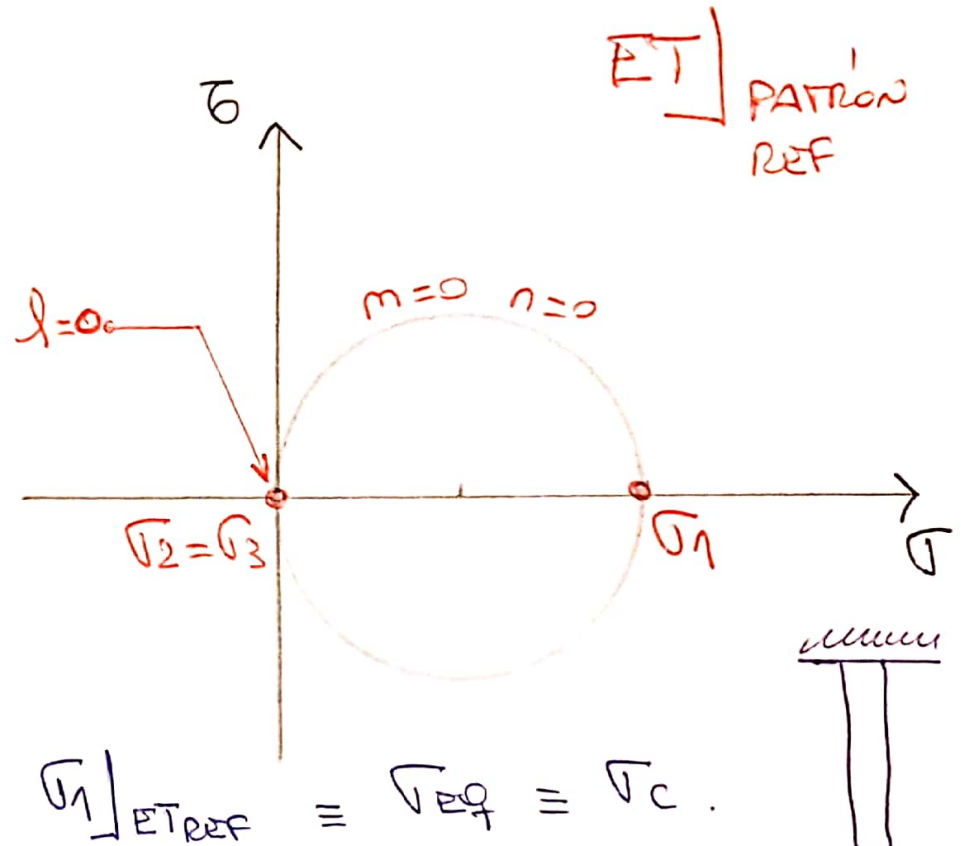 ET] PATRÓN
REF
τ
m=0 n=0
l=0
σ2=σ3
σ1
σ
σ1]ETREF ≡ σeq ≡ σc.